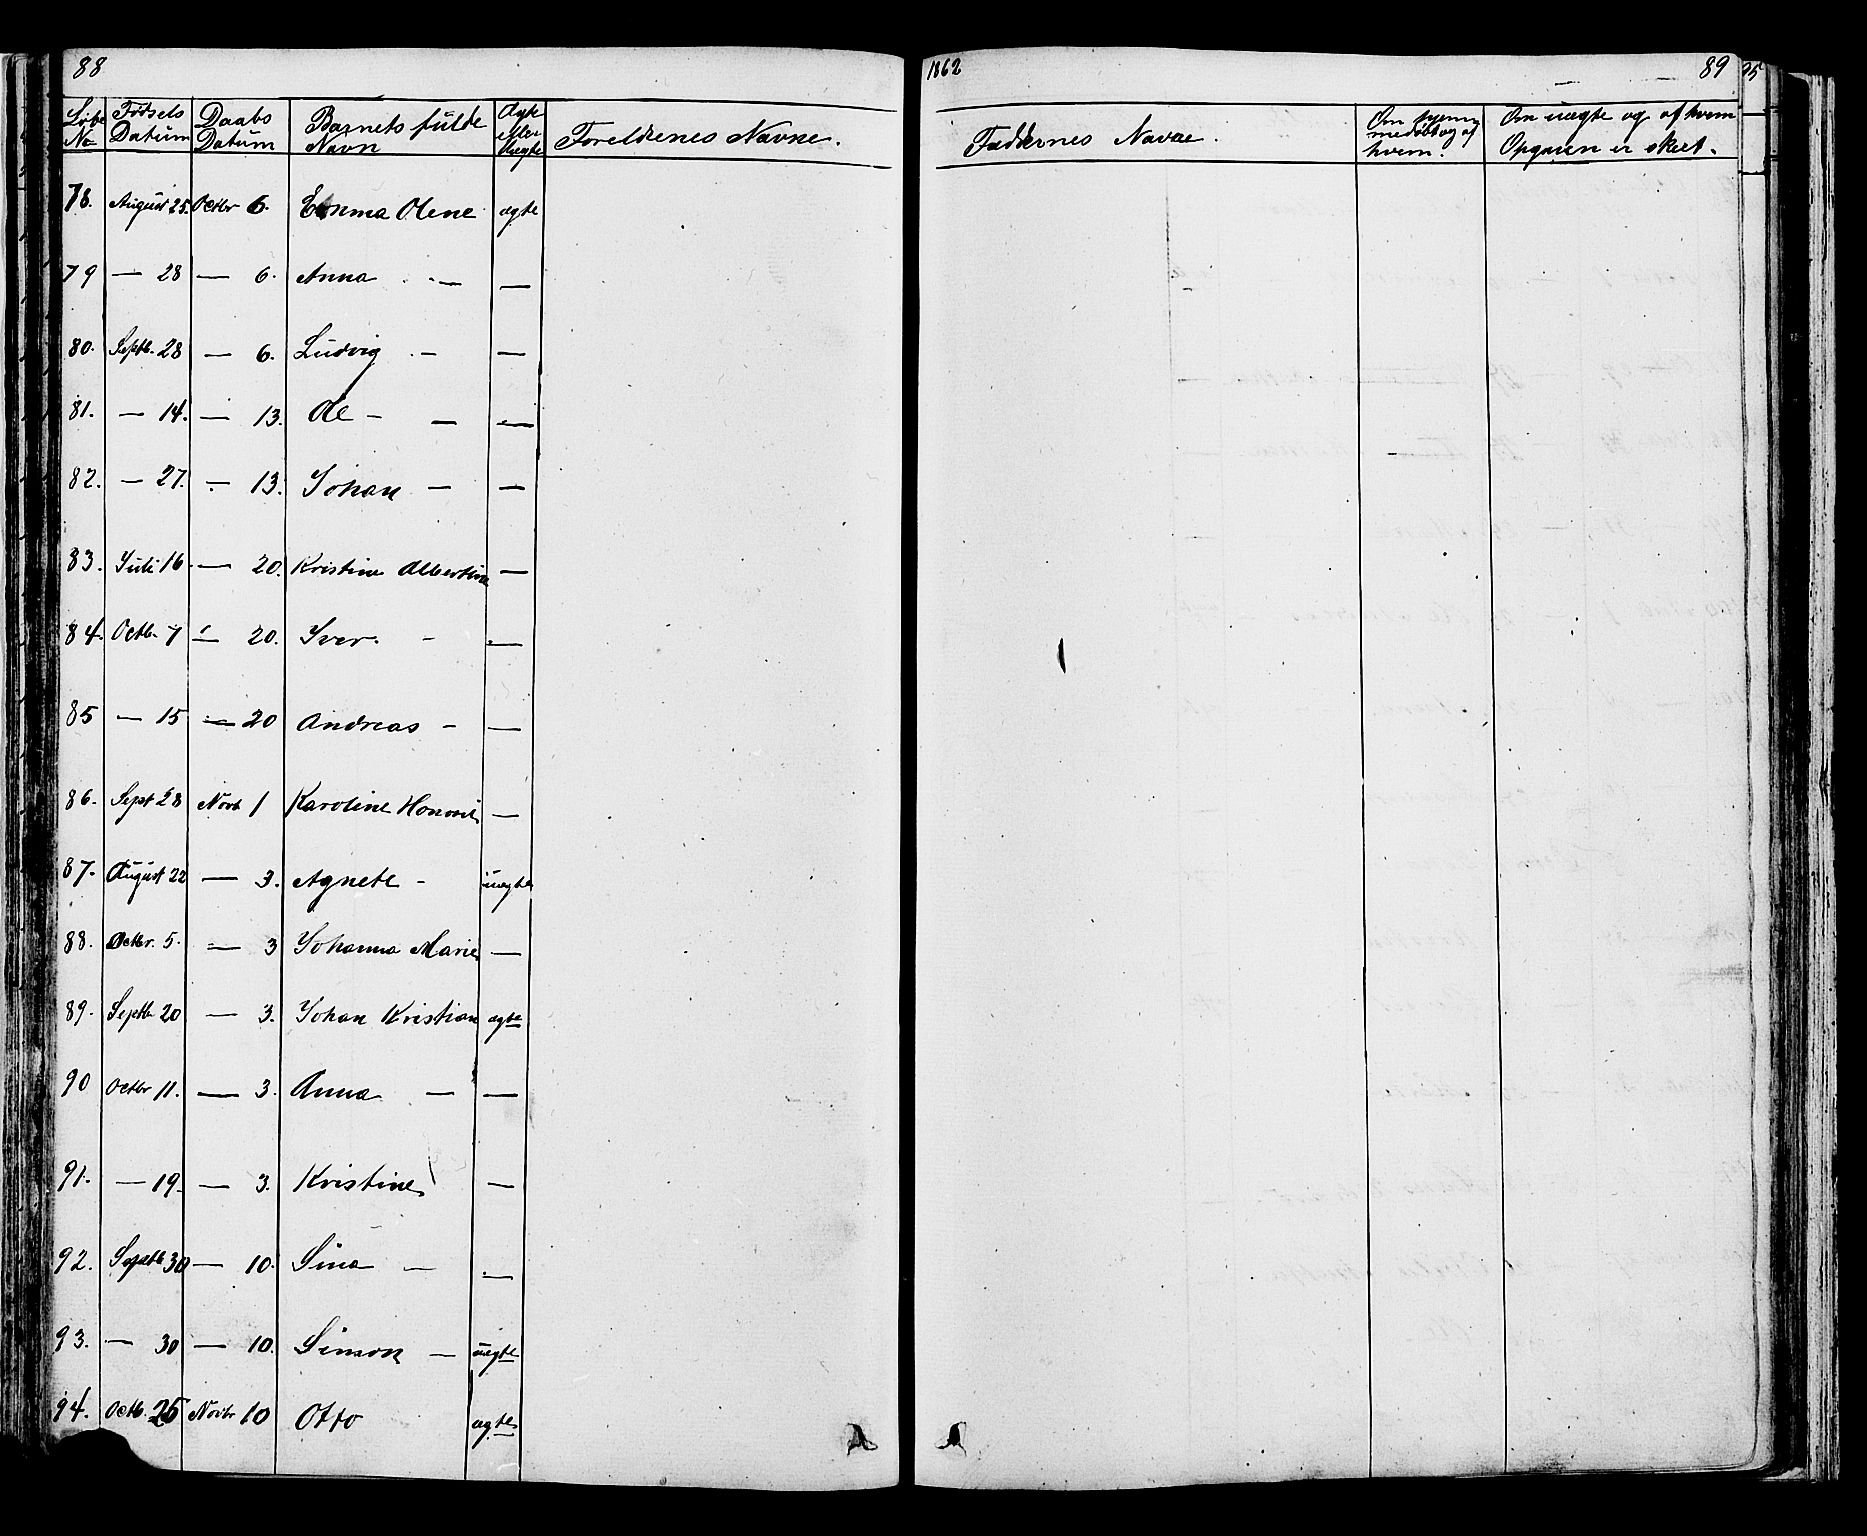 88
Løbe No Fødsels Datum Daabs Datum Barnets fulde Navn Ægte eller Uægte Foreldrenes Navne.
78. August 25. Octbr 6. Emma Olene ægte
79 — 28 — 6. Anna — —
80. Septb. 28 — 6. Ludvig — —
81. — 14. — 13. Ole — — —
82. — 27. — 13. Johan — —
83. Juli 16 — 20. Kristine Albertine —
84. Octb. 7 — 20. Iver. — —
85 — 15 — 20 Andreas — —
86. Sept 28 Novb 1 Karoline —
87. August 22 — 3. Agnete — uægte
88. Octbr. 5. — 3 Johanna Marie —
89. Septb 20 — 3. Johan Kristian ægte
90 Octbr 11. — 3. Anna — —
91. — 19. — 3. Kristine —
92. Septb 30 — 10. Sina — —
93. — 30 — 10. Simon — uægte
94. Octb. 25 Novbr 10 Otto ægte
1862 89
Faddernes Navne. Om hjemmedøbt og af hvem. Om uægte og af hvem Opgaven er skeet.